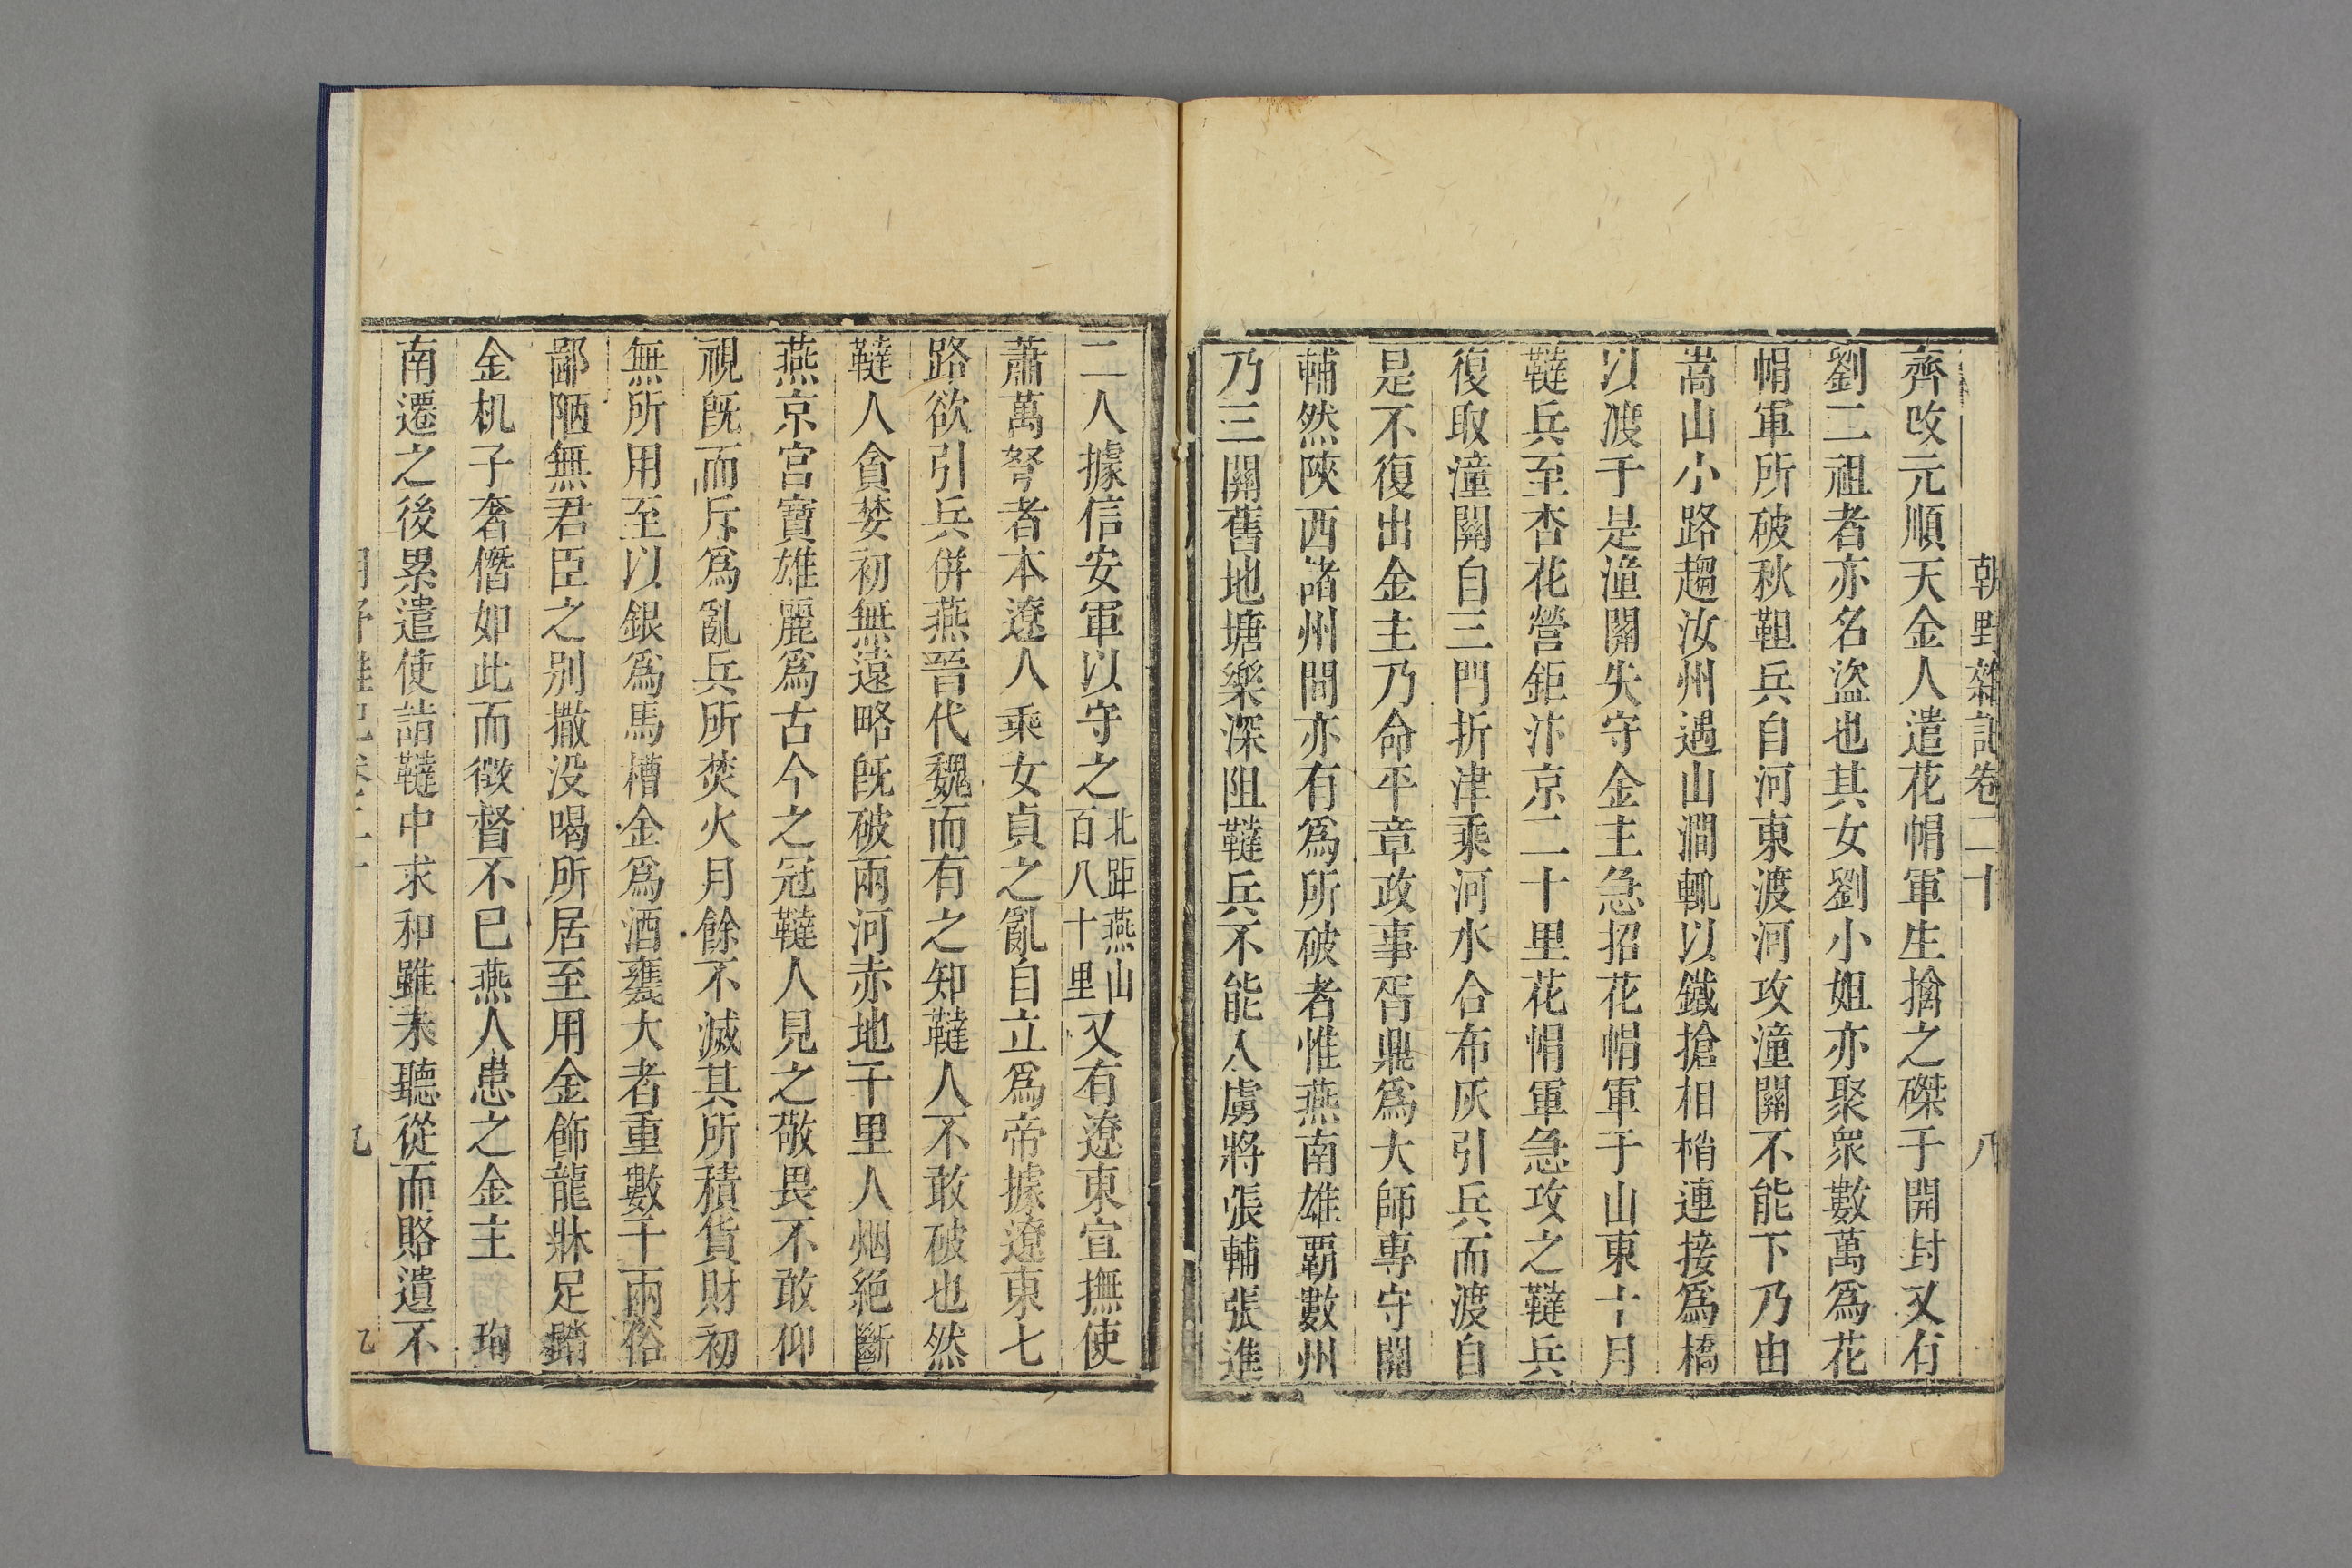 朝野雜記卷二十 八
齊改元順天金人遣花帽軍生擒之磔于開封又有
劉二祖者亦名盜也其女劉小姐亦聚衆數萬爲花
帽軍所破秋靼兵自河東渡河攻潼關不能下乃由
嵩山小路趨汝州遇山澗輒以鐵搶相梢連接爲橋
以渡于是潼關失守金主急招花帽軍于山東十月
韃兵至杏花營鉅汴京二十里花帽軍急攻之韃兵
復取潼關自三門折津乘河氷合布灰引兵而渡自
是不復出金主乃命平章政事胥鼎爲大師專守關
輔然陝西諸州間亦有爲所破者惟燕南雄覇數州
乃三關舊地塘樂深阻韃兵不能入虜將張輔張進
二人據信安軍以守之北距燕山百八十里又有遼東宣撫使
蕭萬弩者本遼人乘女貞之亂自立爲帝據遼東七
路欲引兵併燕晉代魏而有之知韃人不敢破也然
韃人貪婪初無遠略旣破兩河赤地千里人烟絶斷
燕京宮寶雄麗爲古今之冠韃人見之敬畏不敢仰
視旣而斥爲亂兵所焚火月餘不滅其所積貨財初
無所用至以銀爲馬槽金爲酒甕大者重數千兩俗
鄙陋無君臣之别撒没喝所居至用金飾龍牀足踏
金杌子奢僭如此而徵督不巳燕人患之金主 珣
南遷之後累遣使詣韃中求和雖未聽從而賂遺不